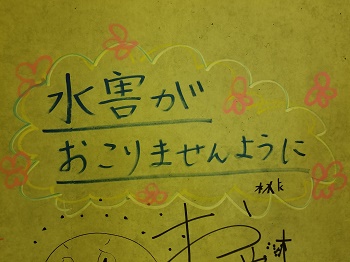 水害が
おこりませんように